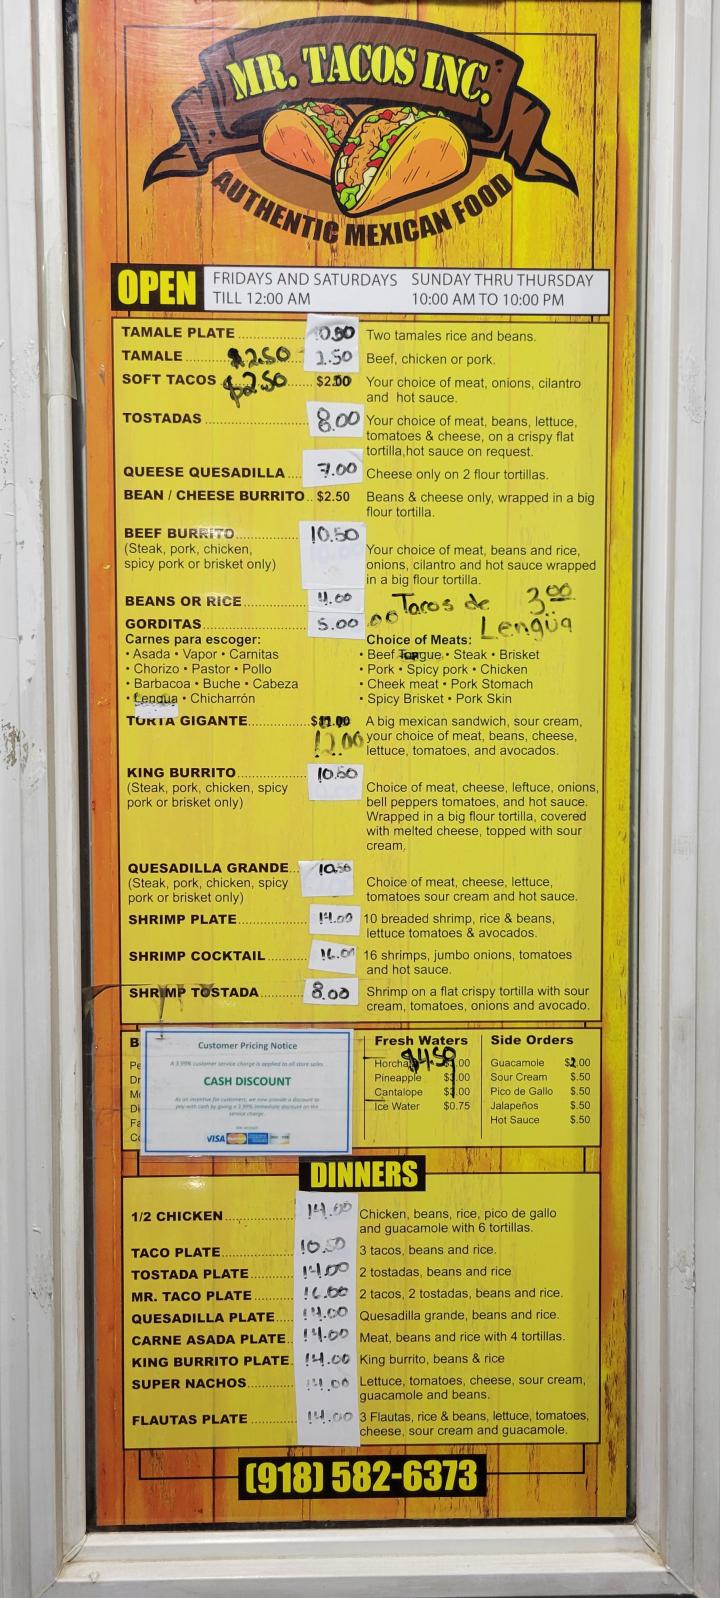 MR. TACOS INC.
AUTHENTIC MEXICAN FOOD
OPEN
FRIDAYS AND SATURDAYS
TILL 12:00 AM
SUNDAY THRU THURSDAY
10:00 AM TO 10:00 PM
TAMALE PLATE 10.50 Two tamales rice and beans.
TAMALE $2.50 2.50 Beef, chicken or pork.
SOFT TACOS $2.50 $2.00 Your choice of meat, onions, cilantro
and hot sauce.
TOSTADAS 8.00 Your choice of meat, beans, lettuce,
tomatoes & cheese, on a crispy flat
tortilla,hot sauce on request.
QUEESE QUESADILLA 7.00 Cheese only on 2 flour tortillas.
BEAN / CHEESE BURRITO $2.50 Beans & cheese only, wrapped in a big
flour tortilla.
BEEF BURRITO 10.50
(Steak, pork, chicken,
spicy pork or brisket only)
Your choice of meat, beans and rice,
onions, cilantro and hot sauce wrapped
in a big flour tortilla.
BEANS OR RICE 4.00
Tacos de 3.00
Lengüa
GORDITAS 5.00 .00
Carnes para escoger:
• Asada • Vapor • Carnitas
• Chorizo • Pastor • Pollo
• Barbacoa • Buche • Cabeza
• Lengua • Chicharrón
Choice of Meats:
• Beef Tongue • Steak • Brisket
• Pork • Spicy pork • Chicken
• Cheek meat • Pork Stomach
• Spicy Brisket • Pork Skin
TORTA GIGANTE 12.00 A big mexican sandwich, sour cream,
your choice of meat, beans, cheese,
lettuce, tomatoes, and avocados.
KING BURRITO 10.50
(Steak, pork, chicken, spicy
pork or brisket only)
Choice of meat, cheese, leftuce, onions,
bell peppers tomatoes, and hot sauce.
Wrapped in a big flour tortilla, covered
with melted cheese, topped with sour
cream.
QUESADILLA GRANDE 10.50
(Steak, pork, chicken, spicy
pork or brisket only)
Choice of meat, cheese, lettuce,
tomatoes sour cream and hot sauce.
SHRIMP PLATE 14.00 10 breaded shrimp, rice & beans,
lettuce tomatoes & avocados.
SHRIMP COCKTAIL 16.00 16 shrimps, jumbo onions, tomatoes
and hot sauce.
SHRIMP TOSTADA 8.00 Shrimp on a flat crispy tortilla with sour
cream, tomatoes, onions and avocado.
Customer Pricing Notice
A 3.99% customer service charge is applied to all store sales.
CASH DISCOUNT
As an incentive for customers, we now provide a discount to
pay with cash by giving a 3.99% immediate discount on the
service charge.
We accept
VISA
Fresh Waters
$4.50
Horchata
Pineapple
Cantalope
Ice Water $0.75
Side Orders
Guacamole $2.00
Sour Cream $.50
Pico de Gallo $.50
Jalapeños $.50
Hot Sauce $.50
DINNERS
1/2 CHICKEN 14.00 Chicken, beans, rice, pico de gallo
and guacamole with 6 tortillas.
TACO PLATE 10.50 3 tacos, beans and rice.
TOSTADA PLATE 14.00 2 tostadas, beans and rice
MR. TACO PLATE 16.00 2 tacos, 2 tostadas, beans and rice.
QUESADILLA PLATE 14.00 Quesadilla grande, beans and rice.
CARNE ASADA PLATE 14.00 Meat, beans and rice with 4 tortillas.
KING BURRITO PLATE 14.00 King burrito, beans & rice
SUPER NACHOS 14.00 Lettuce, tomatoes, cheese, sour cream,
guacamole and beans.
FLAUTAS PLATE 14.00 3 Flautas, rice & beans, lettuce, tomatoes,
cheese, sour cream and guacamole.
(918) 582-6373